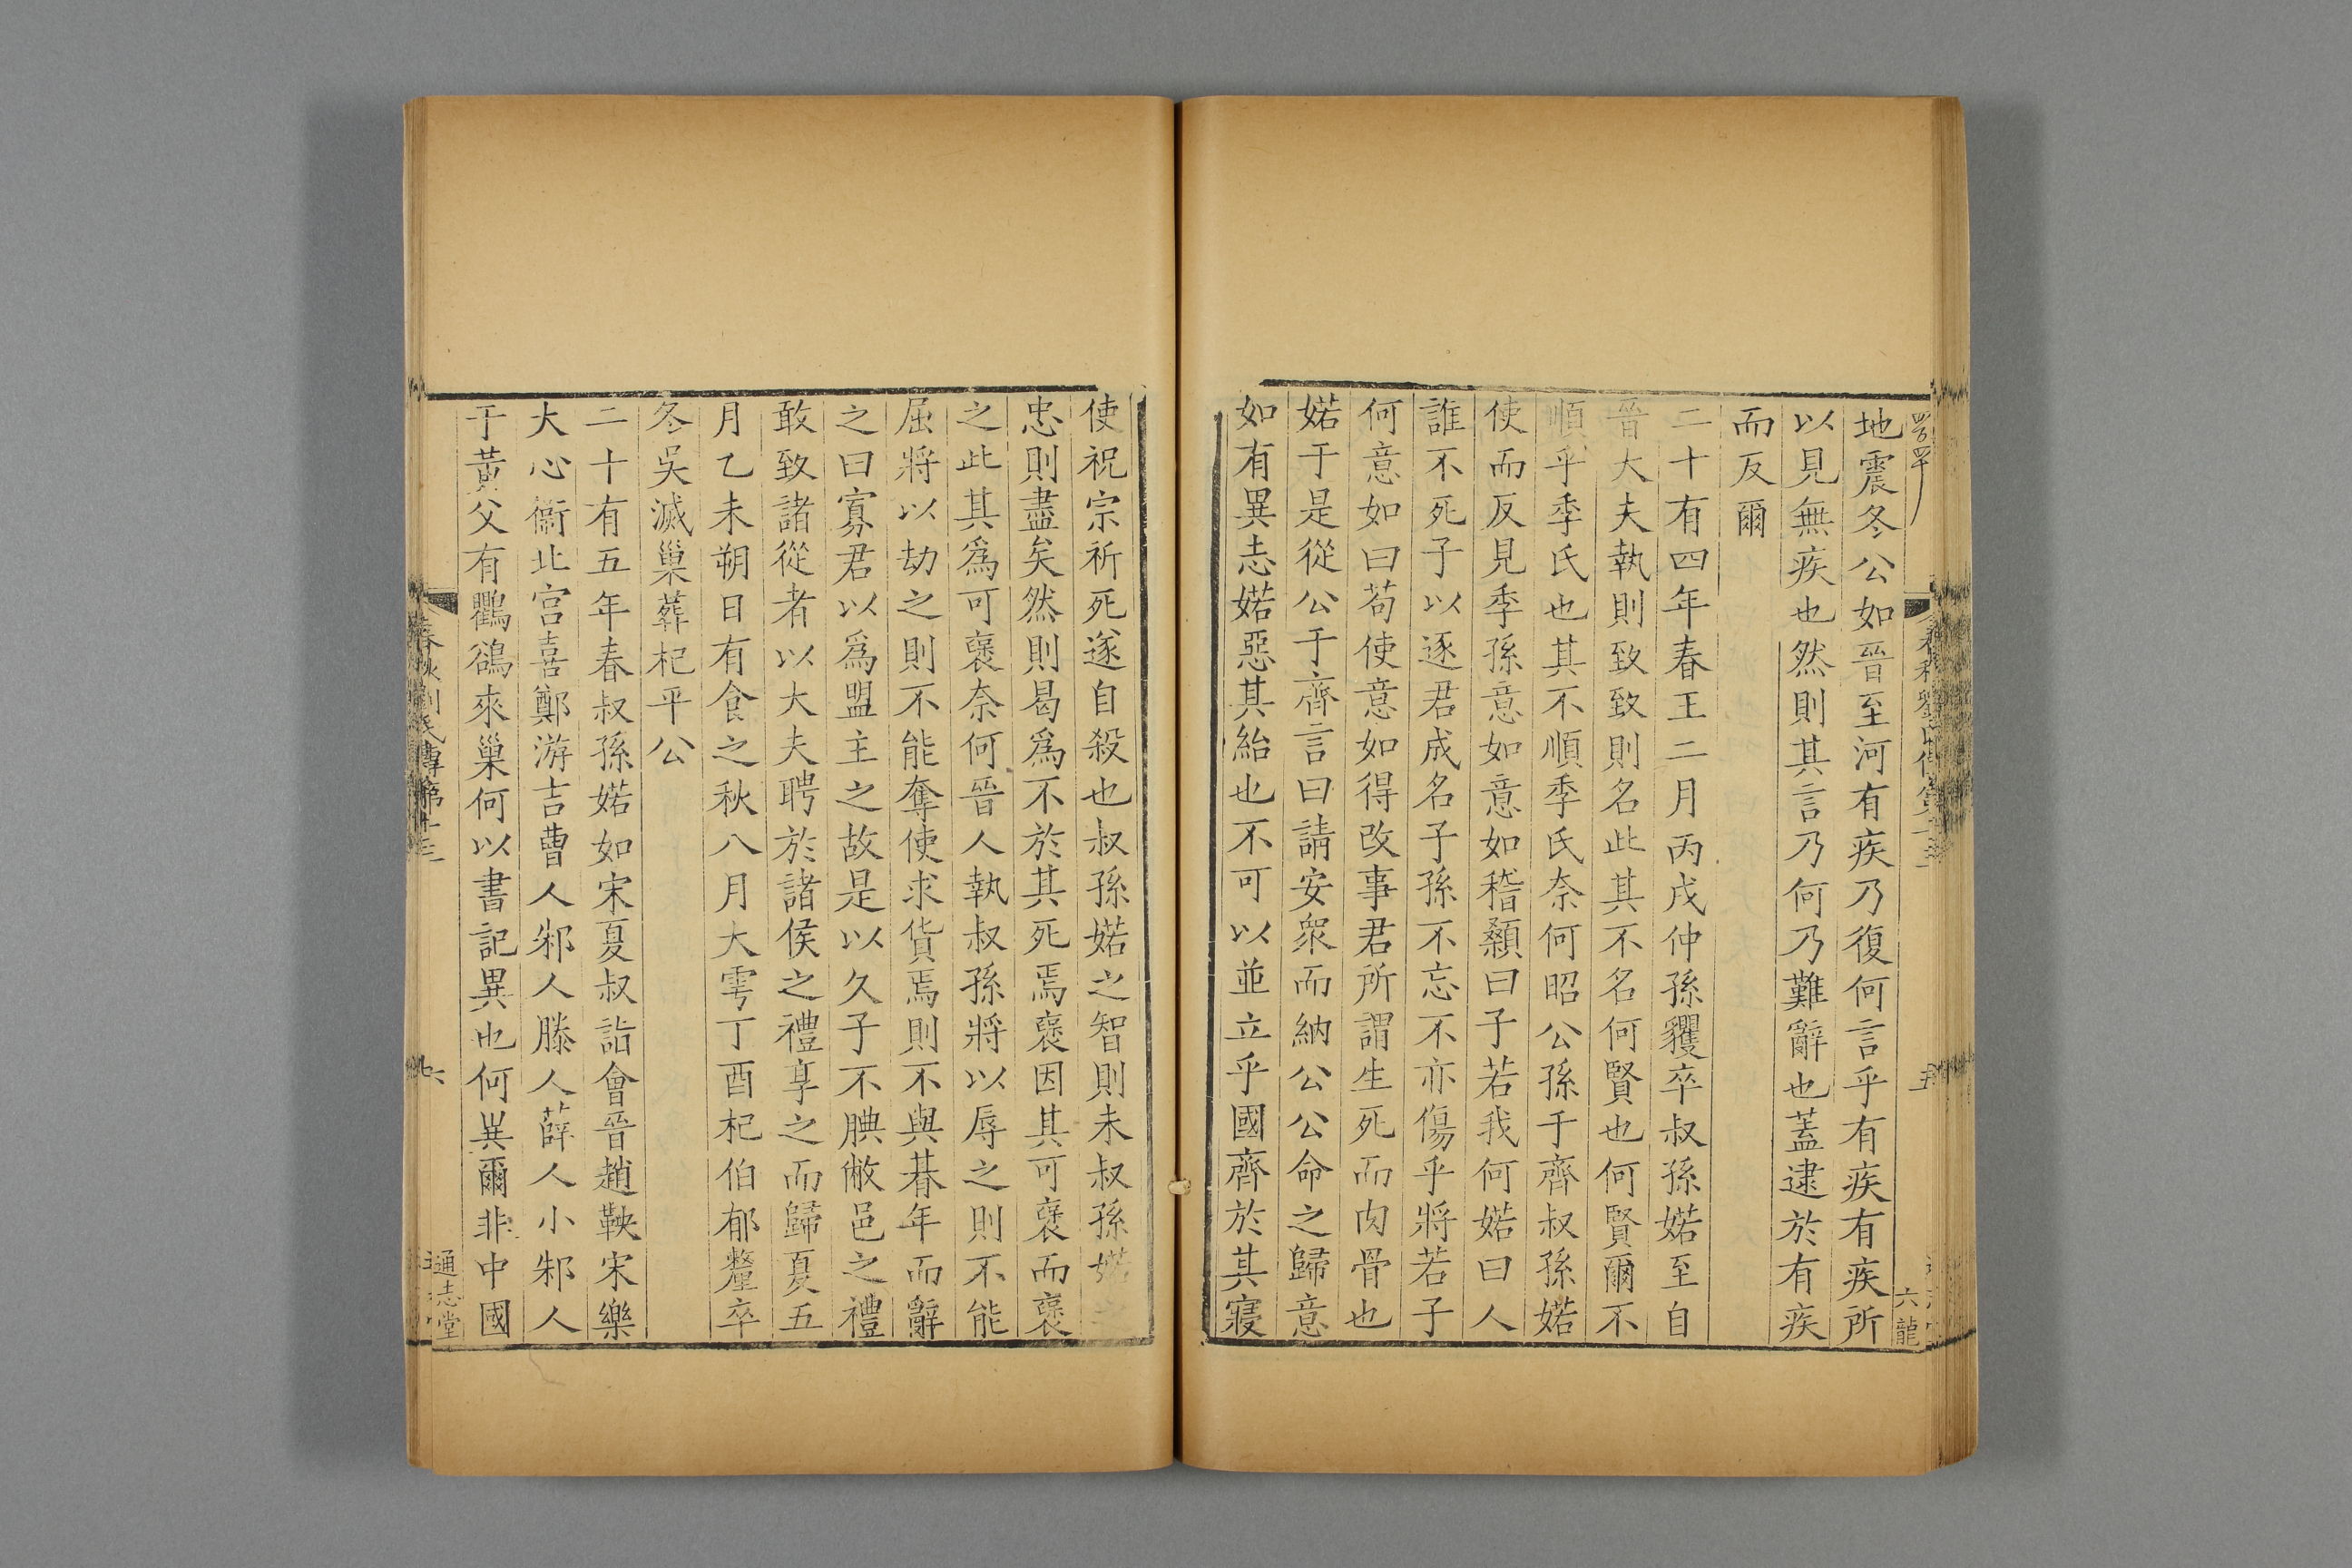 地震冬公如晉至河有疾乃復何言乎有疾有疾所
以見無疾也然則其言乃何乃難辭也蓋逮於有疾
而反爾
二十有四年春王二月丙戌仲孫貜卒叔孫婼至自
晉大夫執則致致則名此其不名何賢也何賢爾不
順乎季氏也其不順季氏奈何昭公孫于齊叔孫婼
使而反見季孫意如意如稽顙曰子若我何婼曰人
誰不死子以逐君成名子孫不忘不亦傷乎將若子
何意如曰苟使意如得改事君所謂生死而肉骨也
婼于是從公于齊言曰請安衆而納公公命之歸意
如有異志婼惡其紿也不可以並立乎國齊於其寢
六龍
使祝宗祈死遂自殺也叔孫婼之智則未叔孫婼之
忠則盡矣然則曷爲不於其死焉襃因其可襃而襃
之此其爲可襃奈何晉人執叔孫將以辱之則不能
屈將以劫之則不能奪使求貨焉則不與朞年而辭
之曰寡君以爲盟主之故是以久子不腆敝邑之禮
敢致諸從者以大夫聘於諸侯之禮享之而歸夏五
月乙未朔日有食之秋八月大雩丁酉杞伯郁釐卒
冬吳滅巢葬杞平公
二十有五年春叔孫婼如宋夏叔詣會晉趙鞅宋樂
大心衞北宫喜鄭游吉曹人邾人滕人薛人小邾人
于黃父有鸜鵒來巢何以書記異也何異爾非中國
春秋劉氏傳第十三
六
通志堂